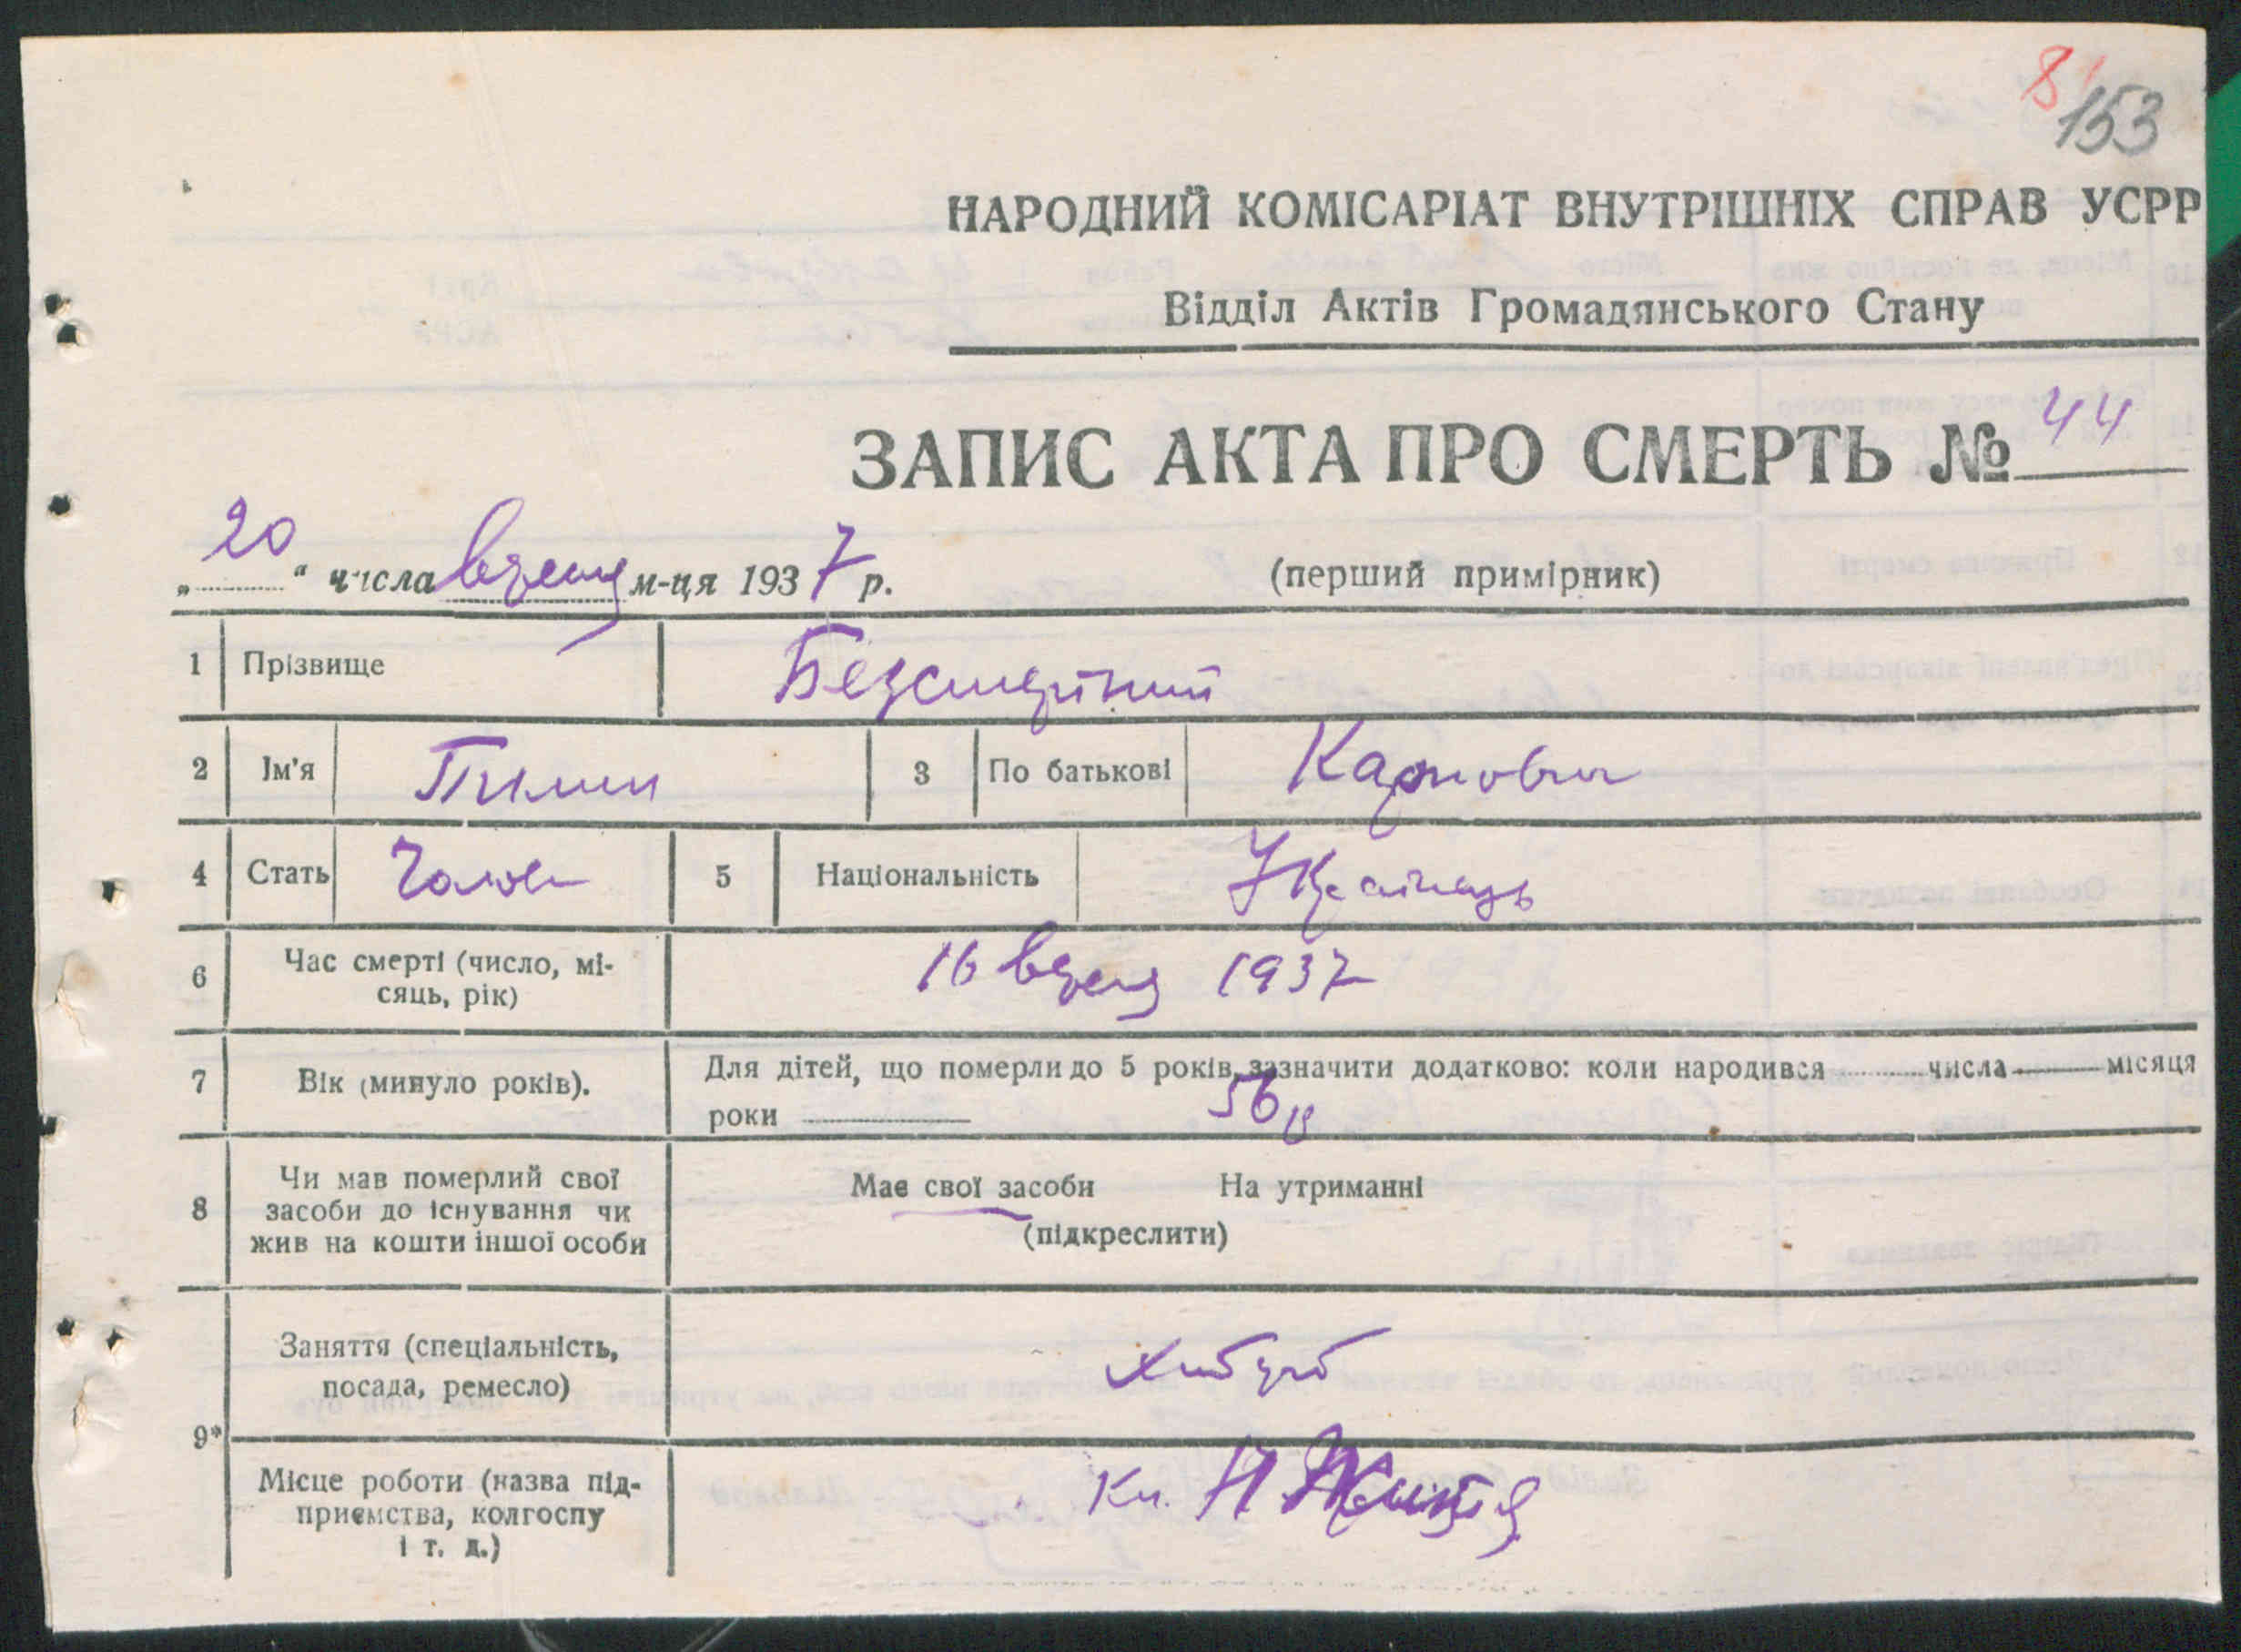 81
153
НАРОДНИЙ КОМІСАРІАТ ВНУТРІШНІХ СПРАВ УСРР
Відділ Актів Громадянського Стану
ЗАПИС АКТА ПРО СМЕРТЬ № 44
„20“ числа вересня м-ця 1937 р. (перший примірник)
1 Прізвище Безсмертний
2 Ім'я 3 По батькові Карпович
4 Стать Чолов 5 Національність Українець
6 Час смерті (число, мі-
сяць, рік) 16 вересня 1937
7 Вік (минуло років). Для дітей, що померли до 5 років, зазначити додатково: коли народився числа місяця
роки 56 р
8 Чи мав померлий свої
засоби до існування чи
жив на кошти іншої особи
Має свої засоби На утриманні
(підкреслити)
9*
Заняття (спеціальність,
посада, ремесло) хлібороб
Місце роботи (назва під-
приємства, колгоспу
і т. д.)
Н Життя